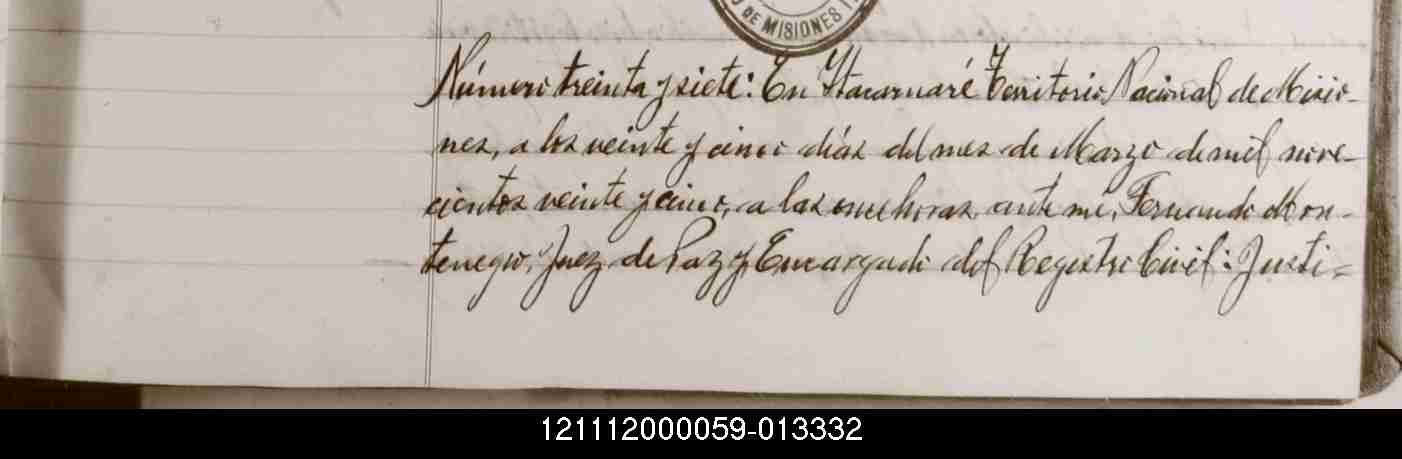 O DE MISIONES
Número treinta y siete: En Itacaruaré Territorio Nacional de Misio-
nes, a los veinte y cinco días del mes de Marzo de mil nove-
cientos veinte y cinco, a las once horas, ante mi, Fernando Mon-
tenegro, Juez de Paz y Encargado del Registro Civil: Justi=
121112000059-013332